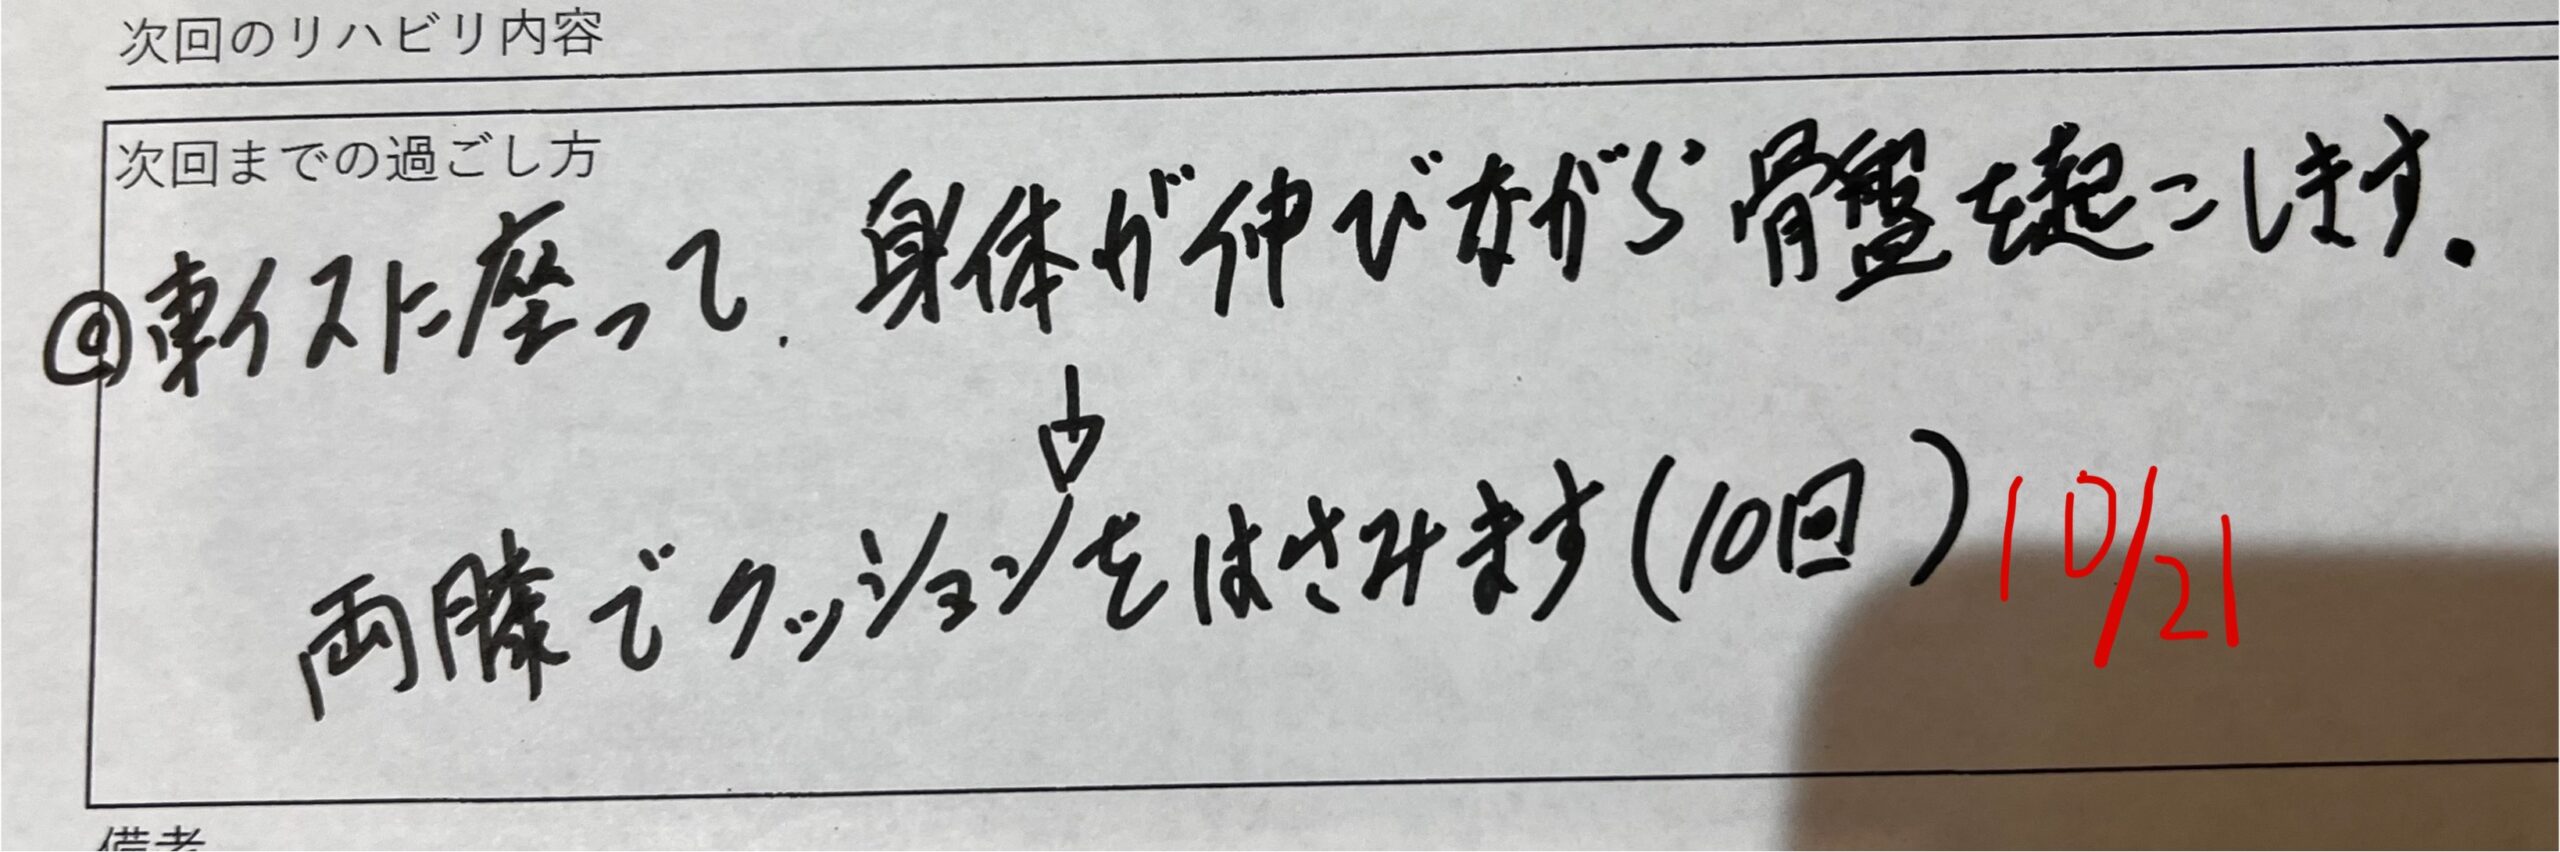 次回のリハビリ内容
次回までの過ごし方
④車イスに座って、身体が伸びながら骨盤を起こします。
↓
両膝でクッションをはさみます(10回) 10/21
備考